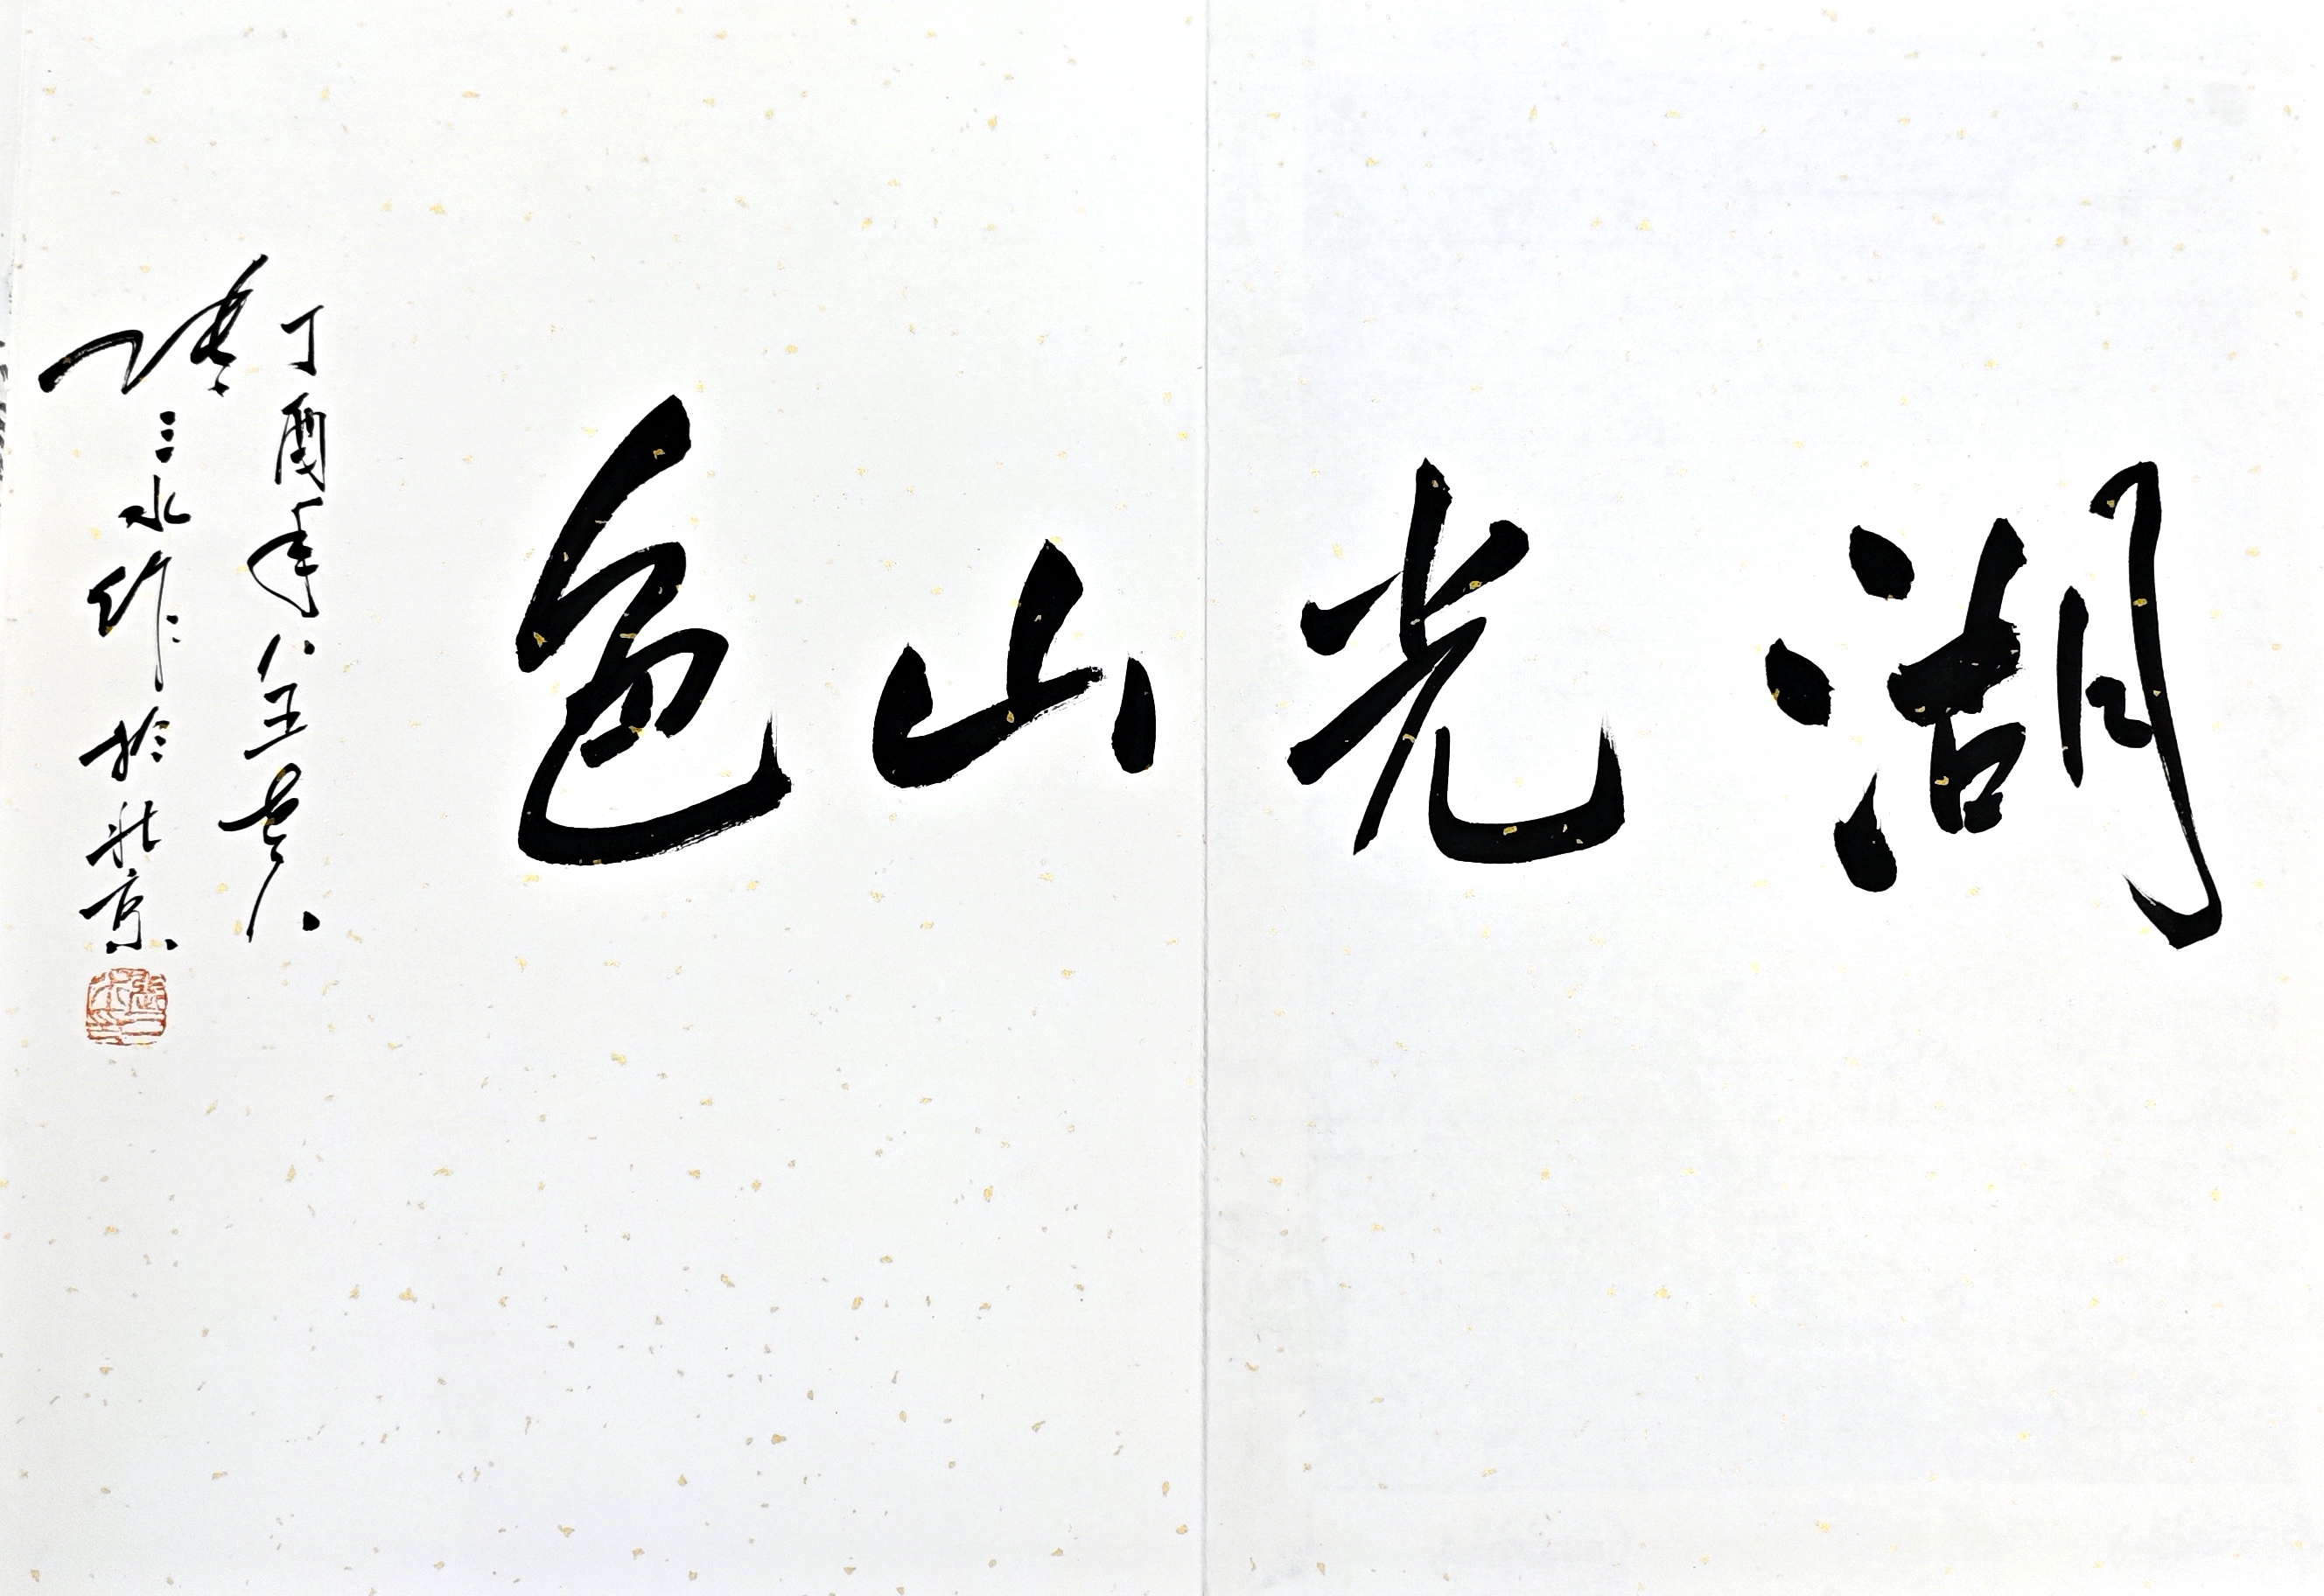 湖光山色
丁酉年
三水作於北京